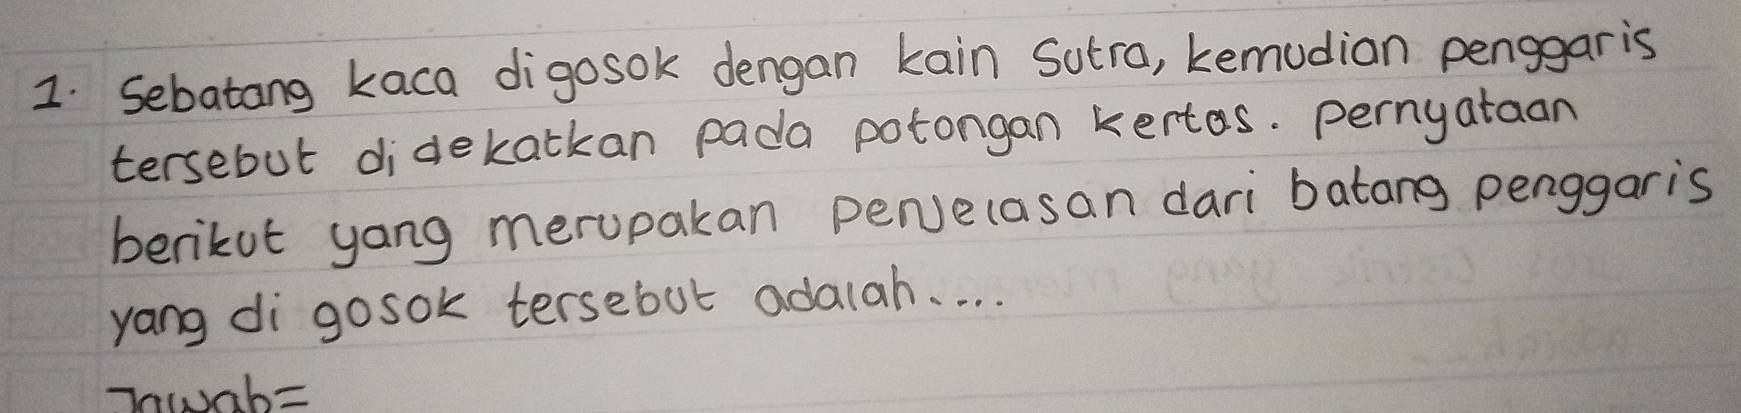 1. Sebatang kaca digosok dengan kain Sutra, kemudian penggaris
tersebut didekatkan pada potongan kertas. pernyataan
berikut yang merupakan penjelasan dari batang penggaris
yang di gosok tersebut adalah....
Jawab=